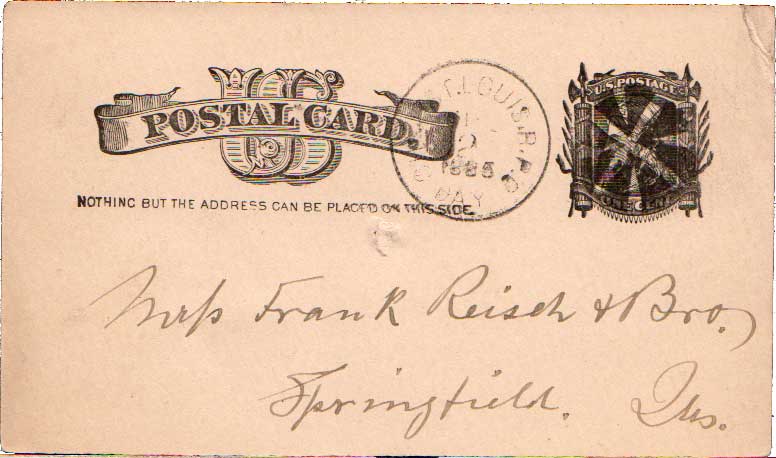 U S
POSTAL CARD.
NOTHING BUT THE ADDRESS CAN BE PLACED ON THIS SIDE.
ST. LOUIS. R.P.O.
2
1885
DAY
U.S. POSTAGE
ONE CENT
Mess Frank Reisch & Bro.
Springfield. Ills.